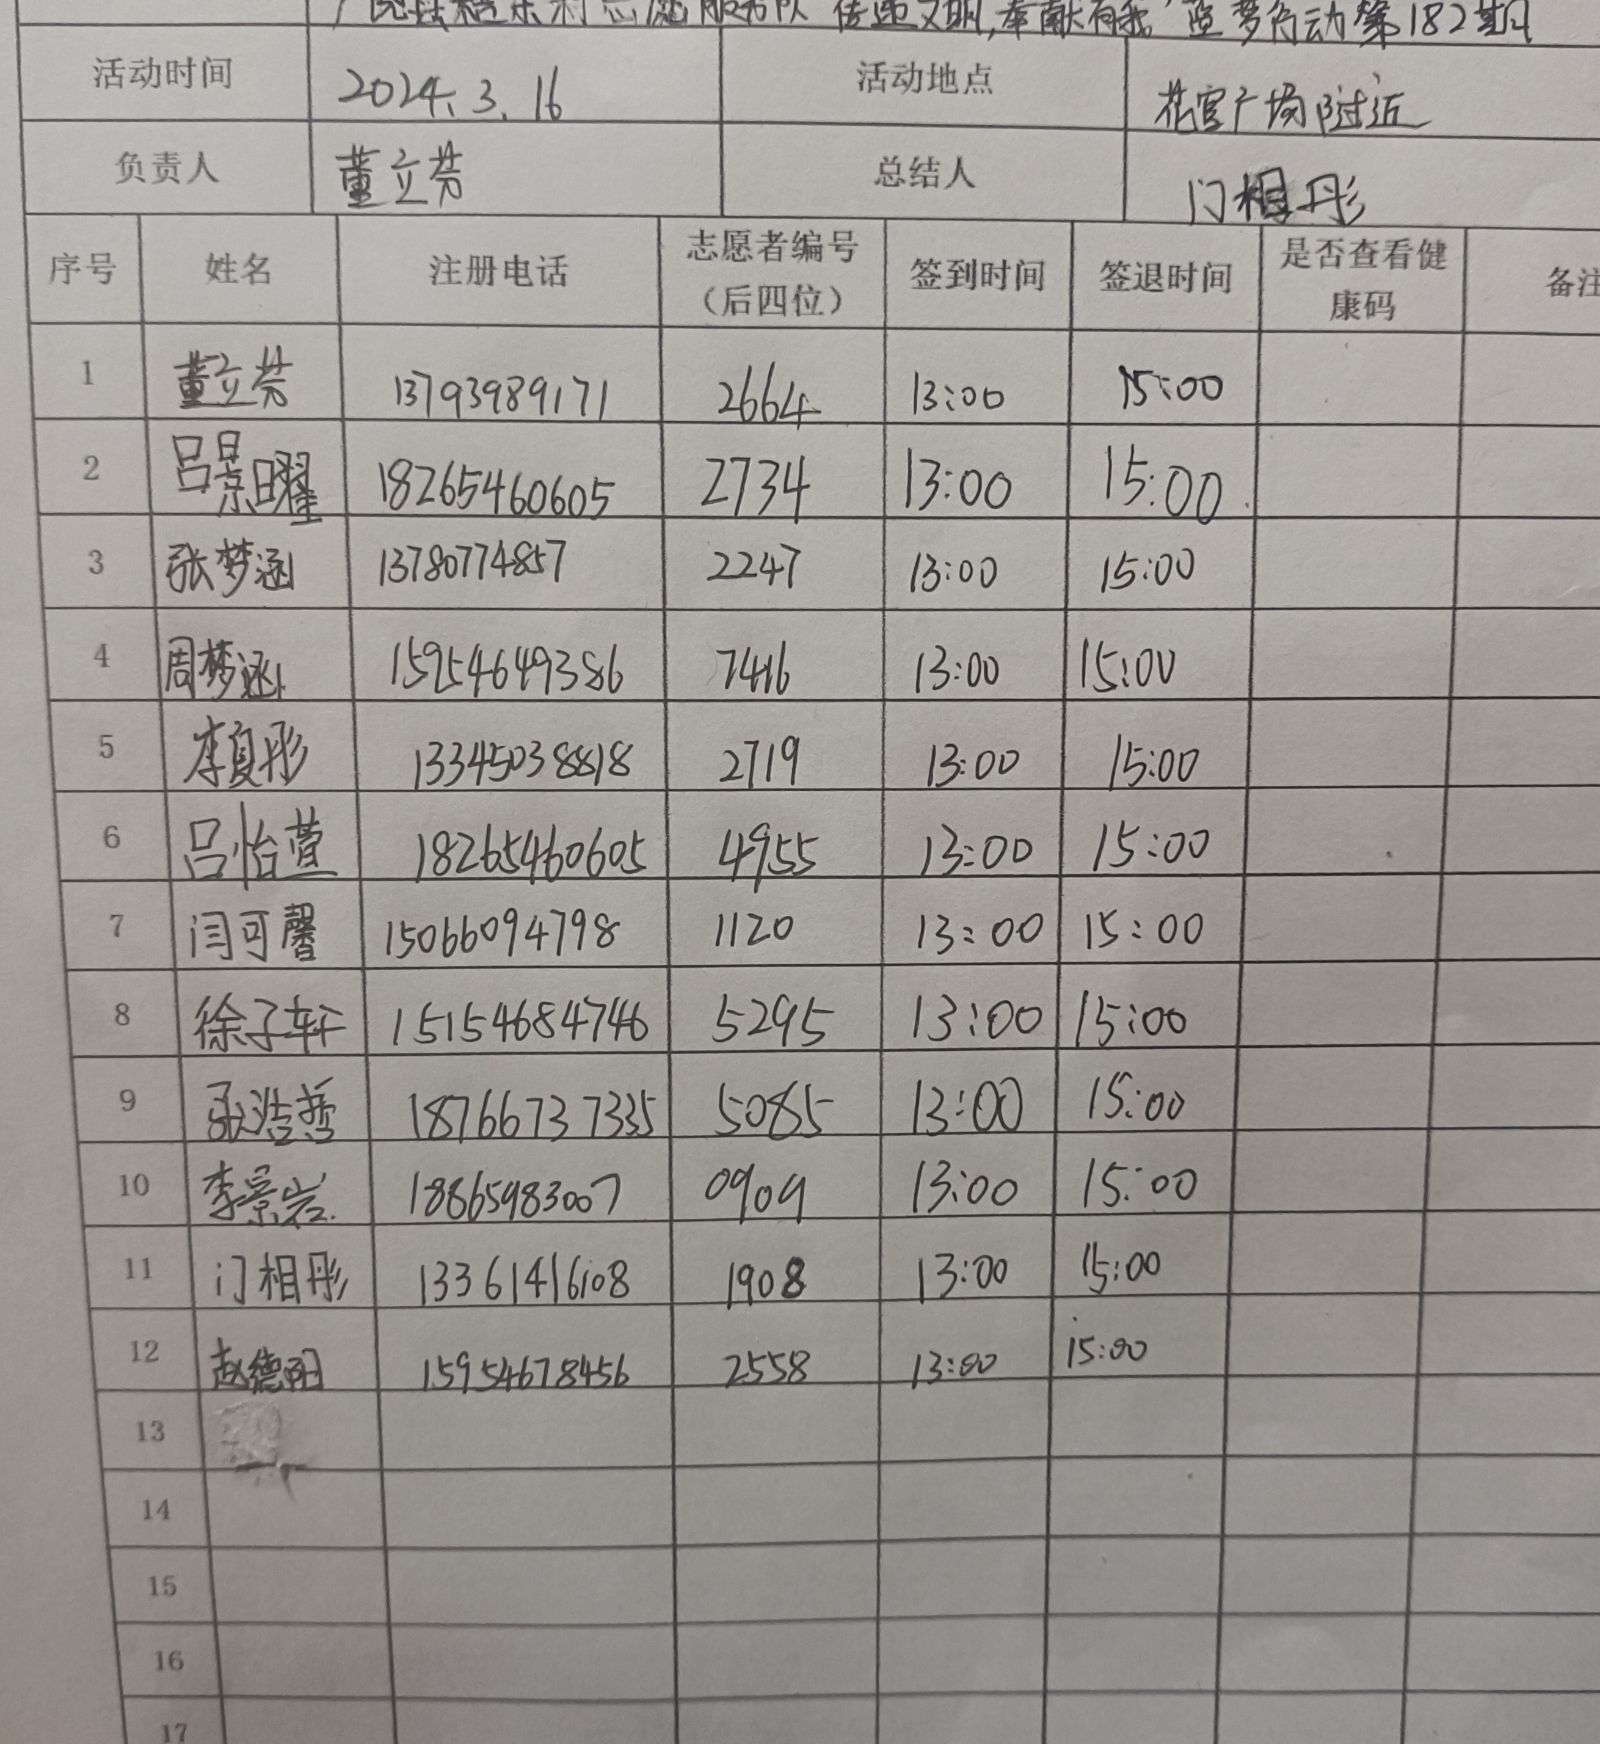 志愿服务队 传递文明,奉献有我 追梦行动第182期
活动时间 2024.3.16 活动地点 花官广场附近
负责人 董立芬 总结人 门相彤
序号 姓名 注册电话 志愿者编号（后四位） 签到时间 签退时间 是否查看健康码 备注
1 董立芬 13793989171 2664 13:00 15:00
2 吕景曜 18265460605 2734 13:00 15:00
3 张梦涵 13780774857 2247 13:00 15:00
4 周梦涵 15954649386 7416 13:00 15:00
5 李夏彤 13345038818 2719 13:00 15:00
6 吕怡萱 18265460605 4955 13:00 15:00
7 闫可馨 15066094798 1120 13:00 15:00
8 徐子轩 15154684746 5295 13:00 15:00
9 张浩哲 18766737335 5085 13:00 15:00
10 李景岩 18865983007 0909 13:00 15:00
11 门相彤 13361416108 1908 13:00 15:00
12 赵德阳 15954678456 2558 13:00 15:00
13
14
15
16
17